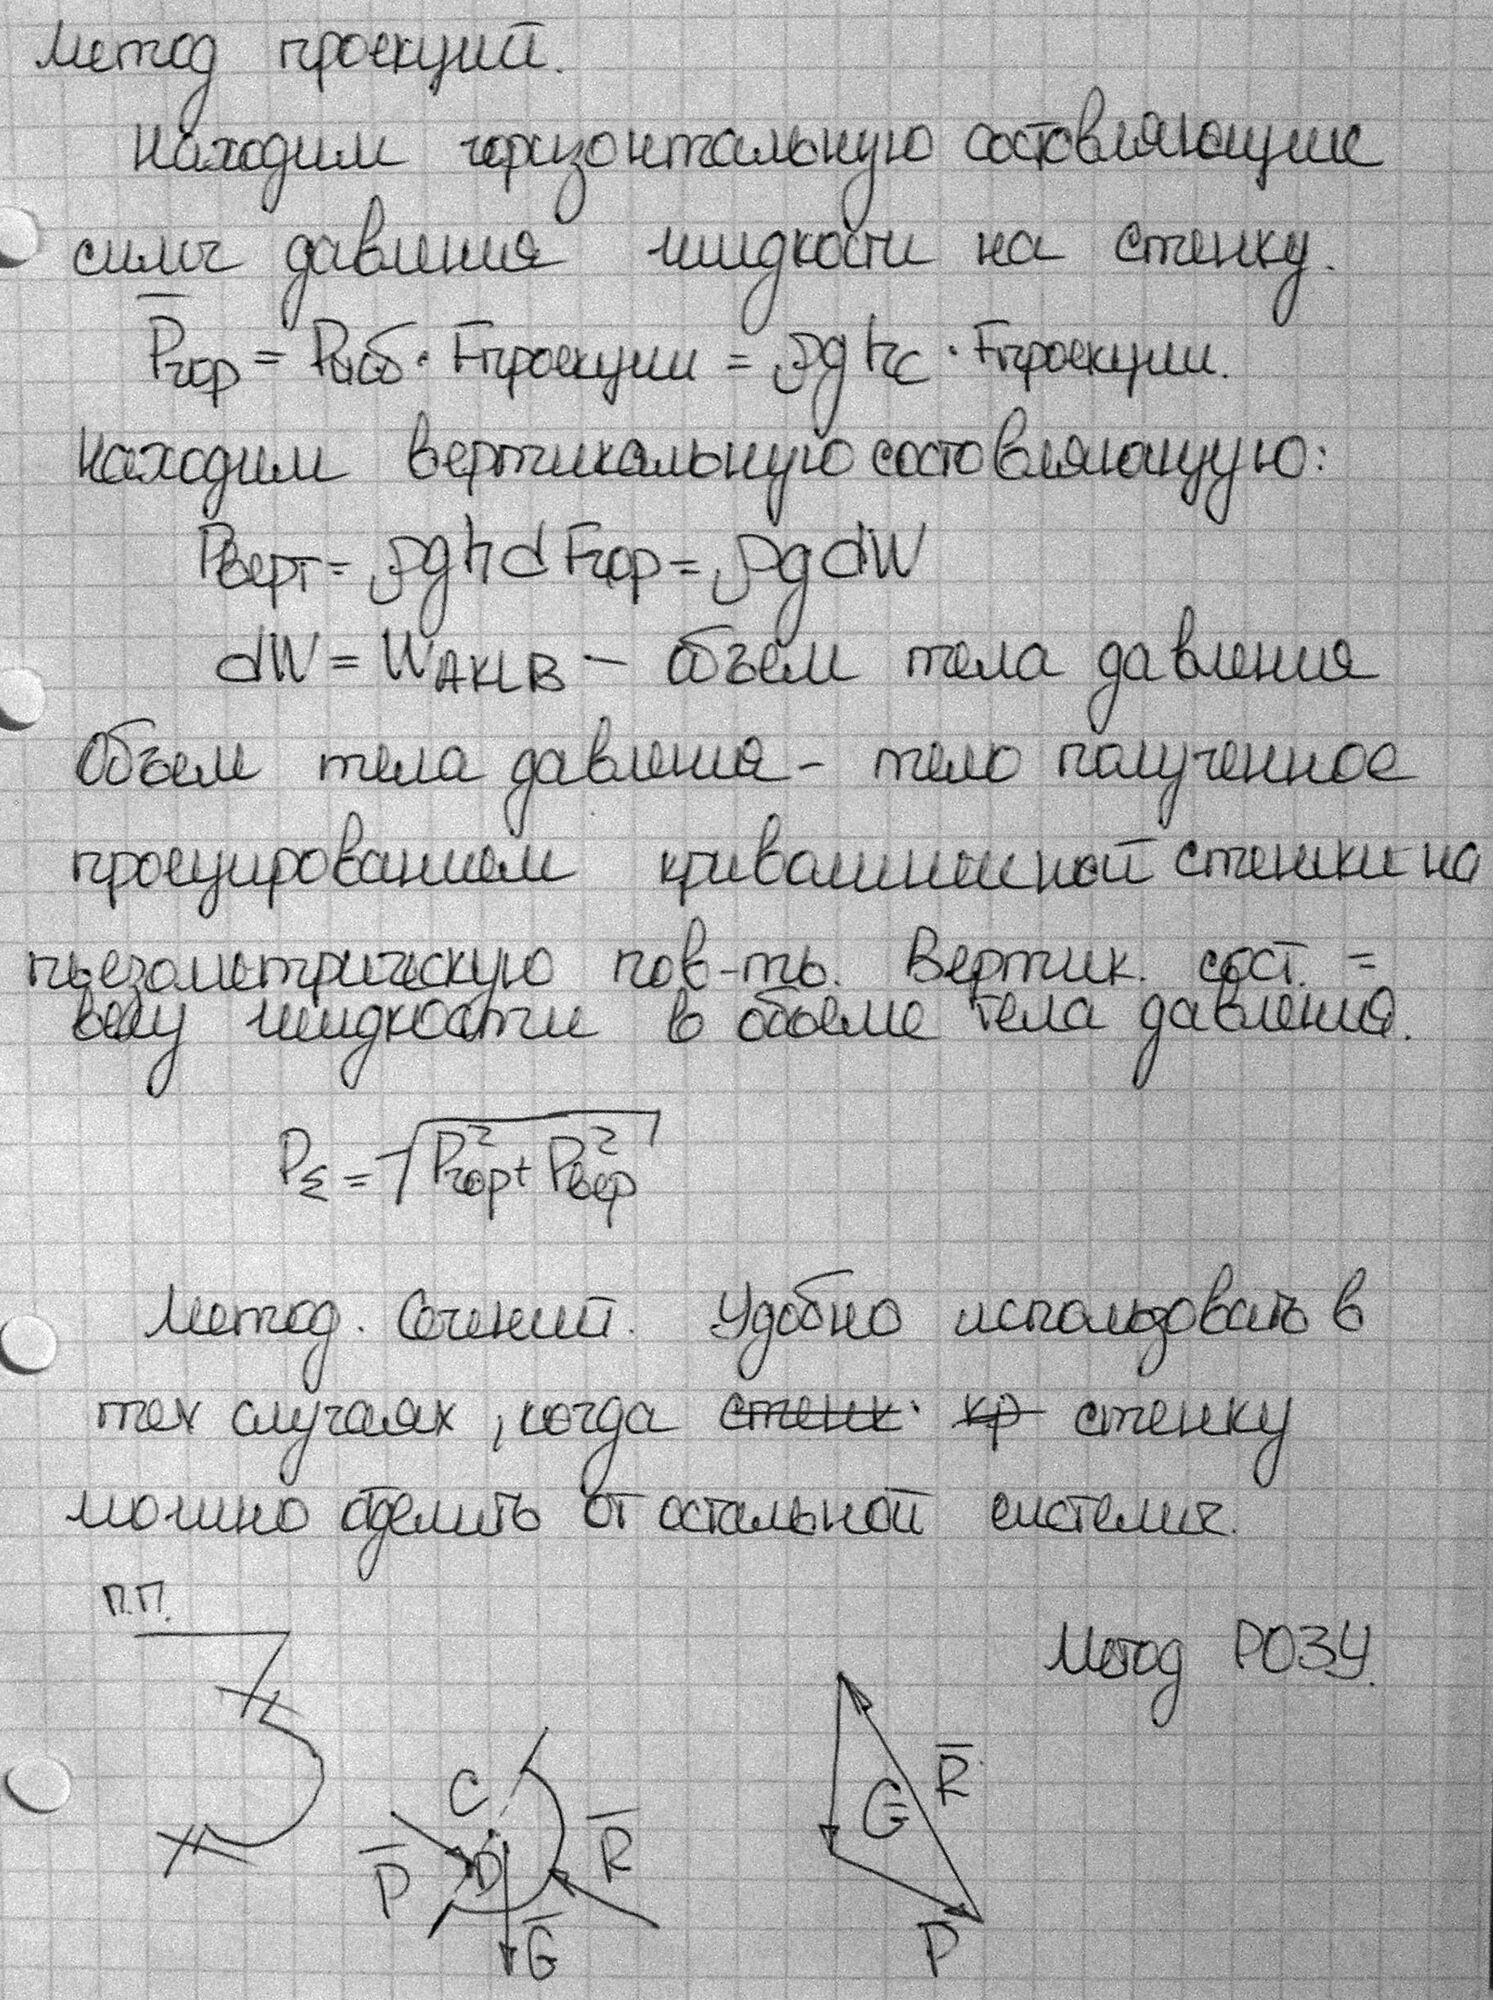 Метод проекций.
Находим горизонтальную составляющие
силы давления жидкости на стенку.
P̅гор = Pизб · Fпроекции = ρghc · Fпроекции.
Находим вертикальную составляющую:
Pверт = ρghdFгор = ρgdW
dW = WAKLB – объем тела давления
Объем тела давления – тело полученное
проецированием криволинейной стенки на
пьезометрическую пов-ть. Вертик. сост. =
весу жидкости в объеме тела давления.
PΣ = √(P²гор + P²вер)
Метод. Сечений. Удобно использовать в
тех случаях, когда стенк. кр стенку
можно отделить от остальной системы.
п.п.
Метод РОЗУ.
C D P̅ R̅ G̅
G R̅ P